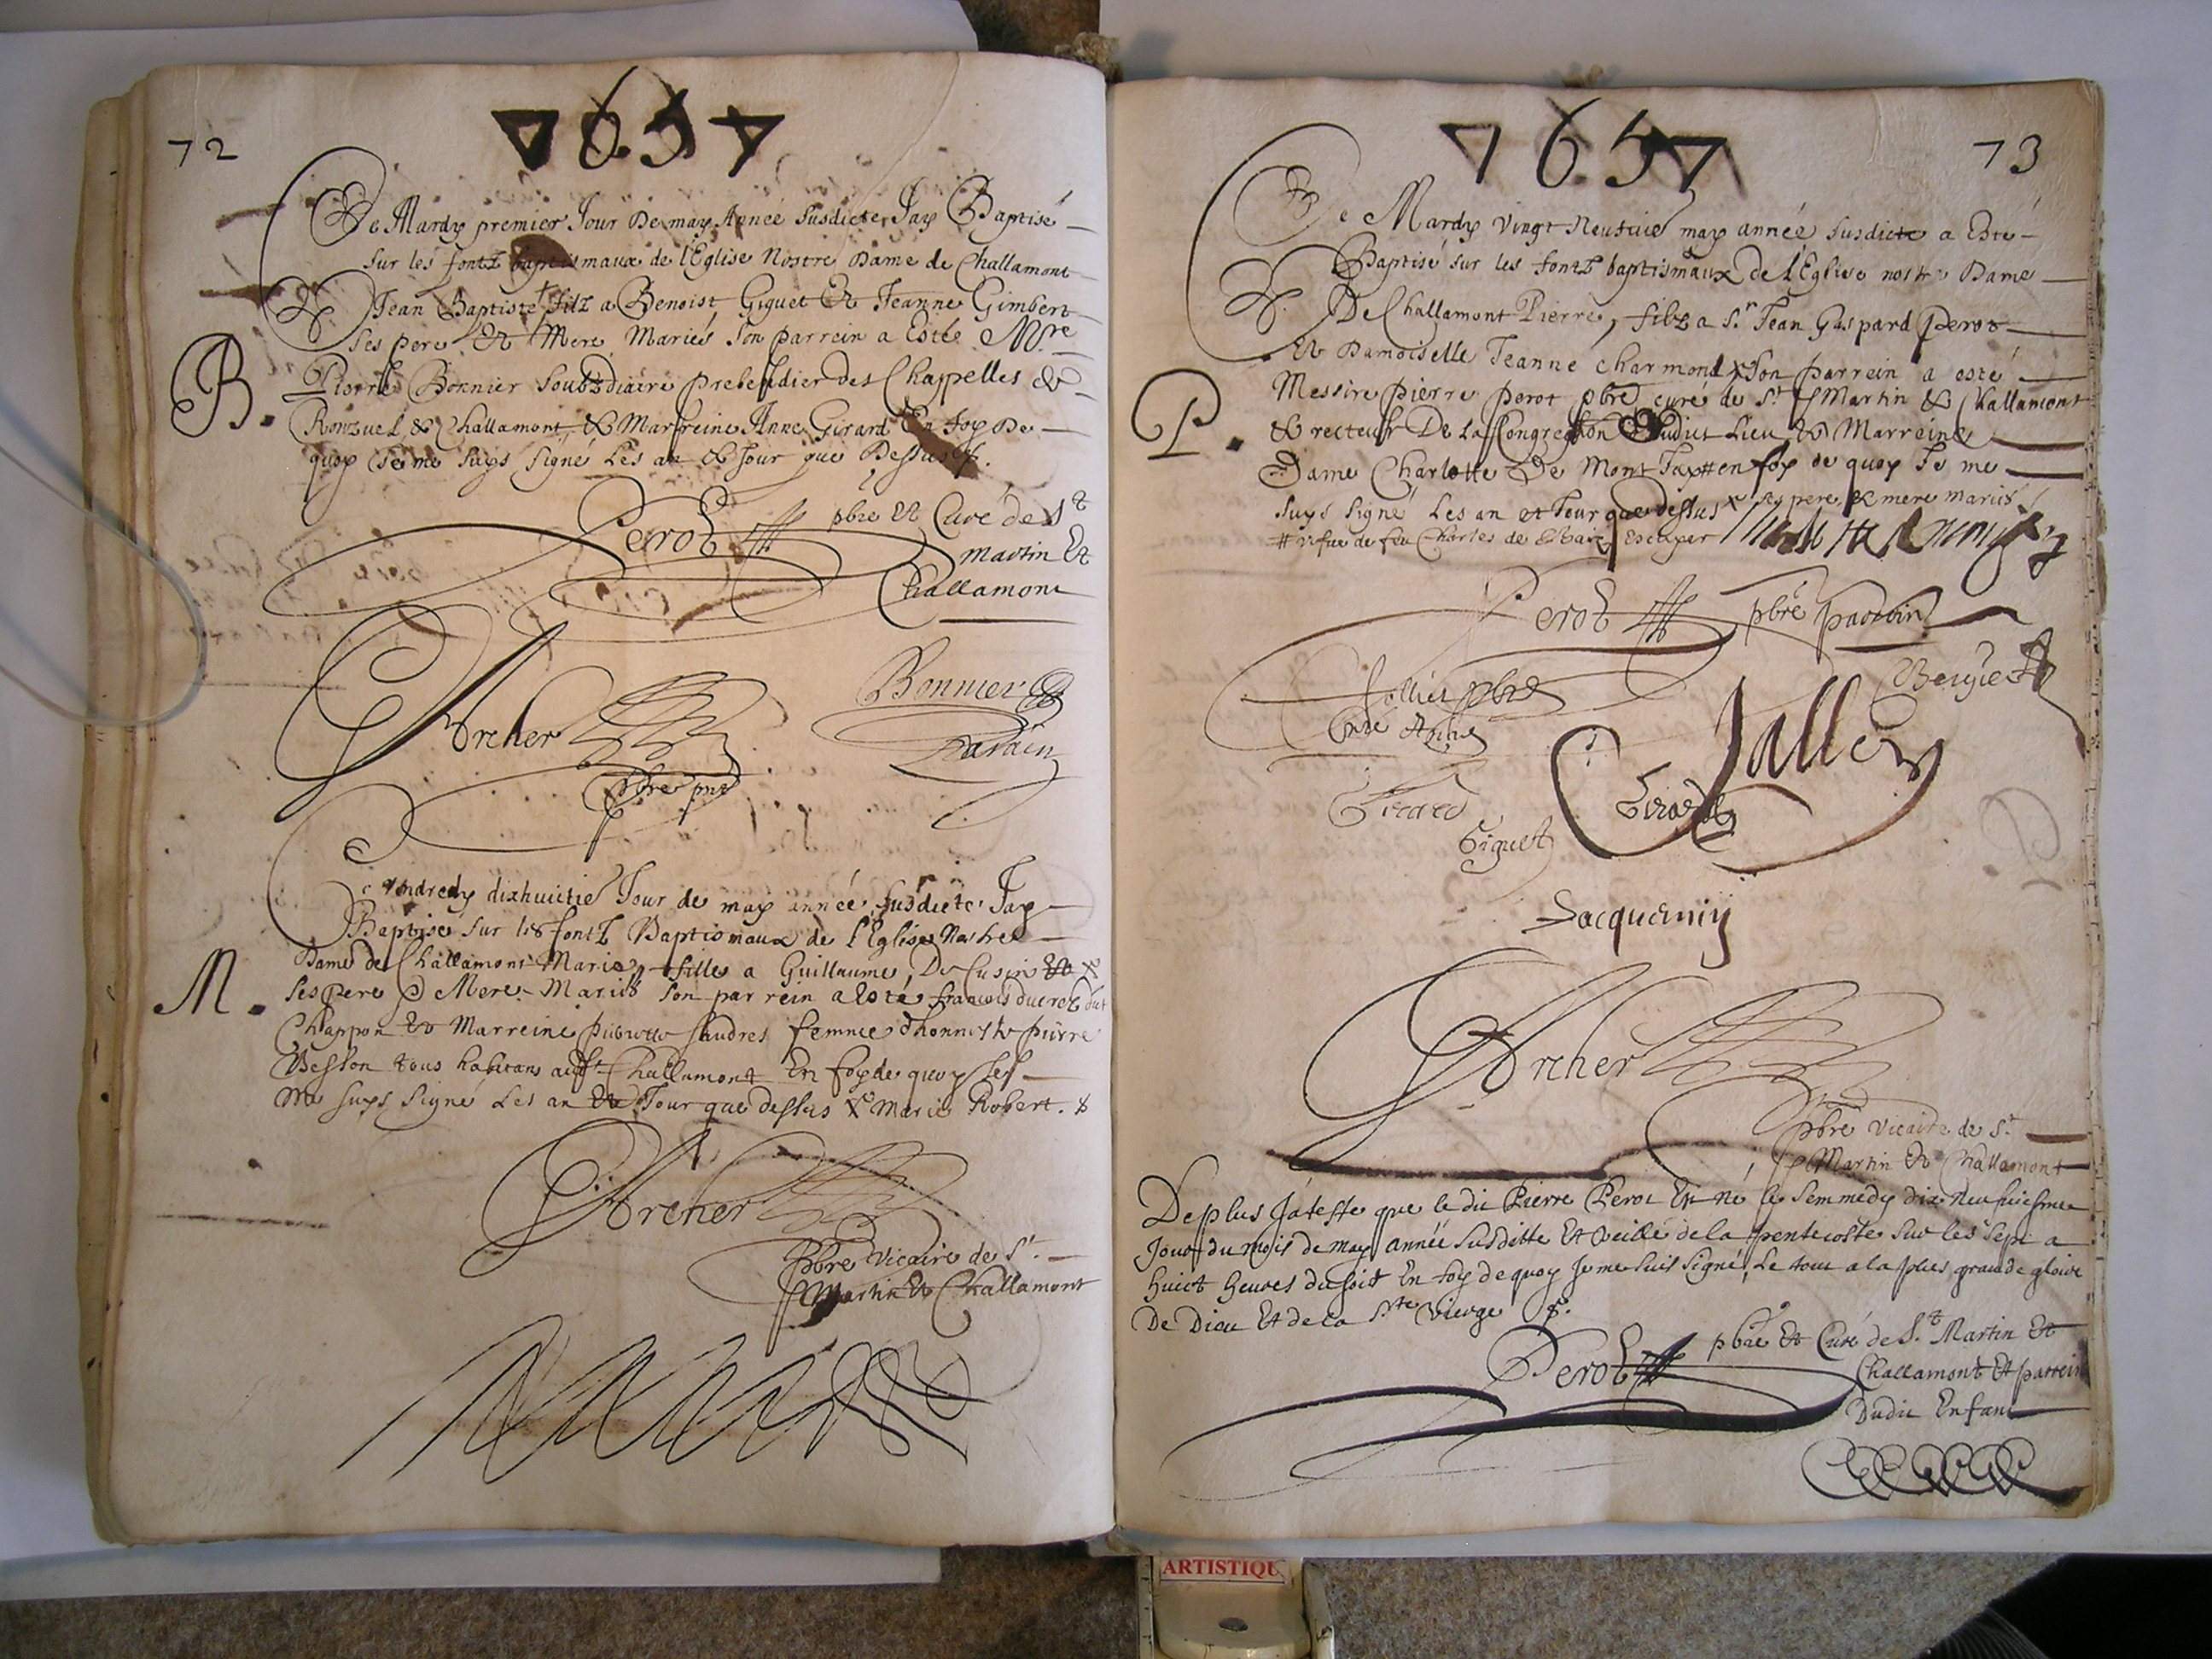 72
1657
Ce Mardy premier Jour De may Année susdicte Jay Baptisé
sur les fontz baptismaux de l'Eglise Nostre Dame de Challamont
Jean Baptiste filz a Benoist Giguet Et Jeanne Gimbert
ses pere Et Mere Mariés son parrein a Esté Mre
B.
Pierre Bonnier soubzdiaire prebendier des Chappelles de
Challamont & Marreine Anne Girard En foy De
quoy je me suys signé Les an & Jour que Dessus
Perot pbre Et Curé de St
Martin Et
Challamont
Archer
pbre pnt
Bonnier
Parain
Ce vendredy dixhuictie Jour de may année susdicte Jay
Baptisé sur les fontz Baptismaux de l'Eglise Nostre
M.
Dame de Challamont Marie, fille a Guillaume, De Cusin
ses Pere & Mere Mariés son parrein a Esté francois ducret dut
Chappon Et Marreine femme d'honneste pierre
Besson tous habitans aud Challamont En foy de quoy Je
me suys signé Les an Et Jour que dessus X Marie Robert.
Archer
Pbre Vicaire de St.
Martin Et Challamont
1657
73
Ce Mardy vingt Neufvie may année susdicte a Esté
Baptisé sur les fontz baptismaux de l'Eglise nostre Dame
De Challamont Pierre, filz a Sr Jean Gaspard Perot
Et Damoiselle Jeanne Charmond X son parrein a esté
P.
Messire pierre perot pbre curé de St Martin & Challamont
& recteur De La Congregaon Dudict Lieu & Marreine
Dame Charlotte De Mont Jay # en foy de quoy Je me
suys signé Les an et Jour que dessus X ses pere & mere mariés
# vefve de feu Charles de Escuyer
Perot pbre parrein
Jollier pbre
Jallier
Girard
Girard
Giguet
Jacquemin
Archer
pbre Vicaire de St
Martin Et Challamont
De plus J'ateste que le dit Pierre Perot Est né le Semmedy dix Neufviesme
Jour du mois de may année Susditte Et Veille de la pentecoste sur les sept a
huict heures du soir En foy de quoy Je me suis signé, Le tout a la plus grande gloire
De Dieu Et de la Ste Vierge
Perot pbre Et Curé de St Martin Et
Challamont Et parrein
Dudit Enfant
ARTISTIQU